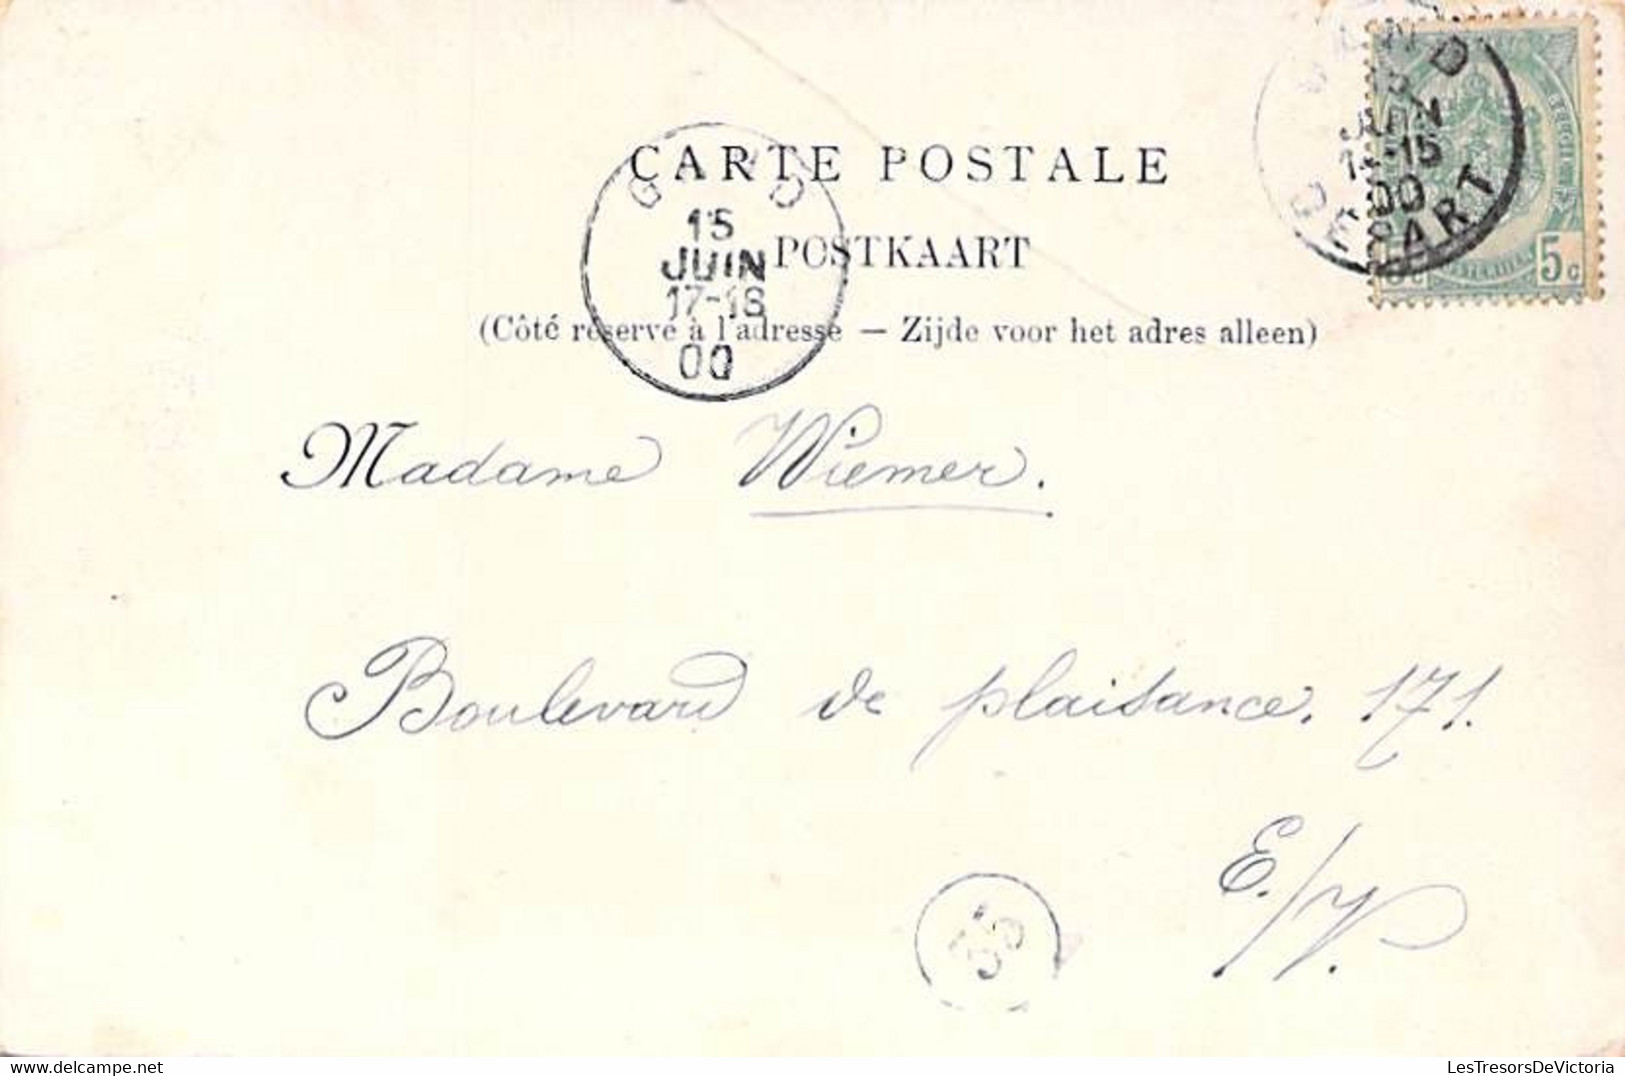 CARTE POSTALE
POSTKAART
(Côté réservé à l'adresse — Zijde voor het adres alleen)
G D
15
JUIN
17-18
00
JUIN
-15
00
DEPART
5c
Madame Wiemer.
Boulevard de plaisance. 171.
E./V.
LesTresorsDeVictoria